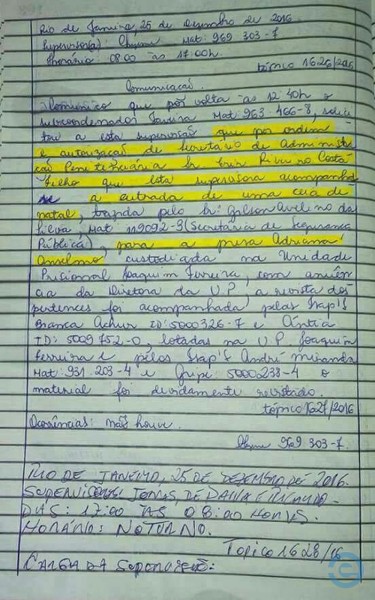 Rio de Janeiro, 25 de Dezembro de 2016
Supervisor(a): Mat: 969 303-7
Horário: 08:00 às 17:00h.
tópico 1626/2016
Comunicação
Comunico que por volta às 12:40h o
subcoordenador Mat: 963 466-8, solici-
tou a esta supervisão que por ordem
e autorização de Secretário de Administra
ção Penitenciária Costa
Filho que esta supervisora acompanha
sse a entrada de uma ceia de
natal, trazida pelo Sr: Gilson Avelino da
Silva, Mat: 119092-9 (Secretaria de Segurança
Pública), para a presa Adriana
Anselmo custodiada na Unidade
Prisional Joaquim Ferreira, com anuên
cia da Diretora da U.P a revista dos
pertences foi acompanhada pelas Isap's
Bianca ID: 5000326-7 e Cíntia
ID: 5009752-0, lotadas na U.P Joaquim
Ferreira e pelos Isap's André Miranda
Mat: 931.203-4 e 5000238-4 o
material foi devidamente revistado.
tópico 1627/2016
Ocorrências: não houve.
969 303-7.
RIO DE JANEIRO, 25 DE DEZEMBRO DE 2016.
SUPERVISORES: JONAS, DE PAULA E
DAS: 17:00 ÀS 08:00 HORAS.
HORÁRIO: NOTURNO.
TOPICO 1628/16
CARGA DA SUPERVISÃO: